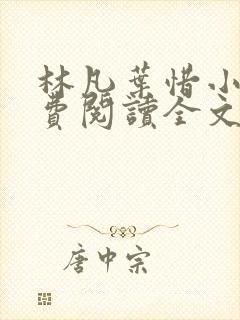 林凡葉惜小
費閱讀全文
唐中宗